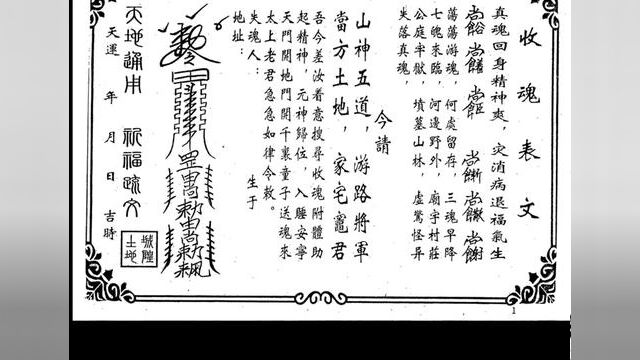 收魂表文
真魂回身精神爽，災消病退福氣生
蕩蕩游魂，何處留存，三魂早降
七魄來臨，河邊野外，廟宇村莊
公庭牢獄，墳墓山林，虛驚怪异
失落真魂，
今請
山神五道，游路將軍
當方土地，家宅竈君
吾今差汝着意搜尋收魂附體助
起精神，元神歸位，入睡安寧
天門開地門開千裏童子送魂來
太上老君急急如律令敕。
失魂人：生于
地址：
天地通用 祈福疏文
天運 年 月 日 吉時
城隍土地
1